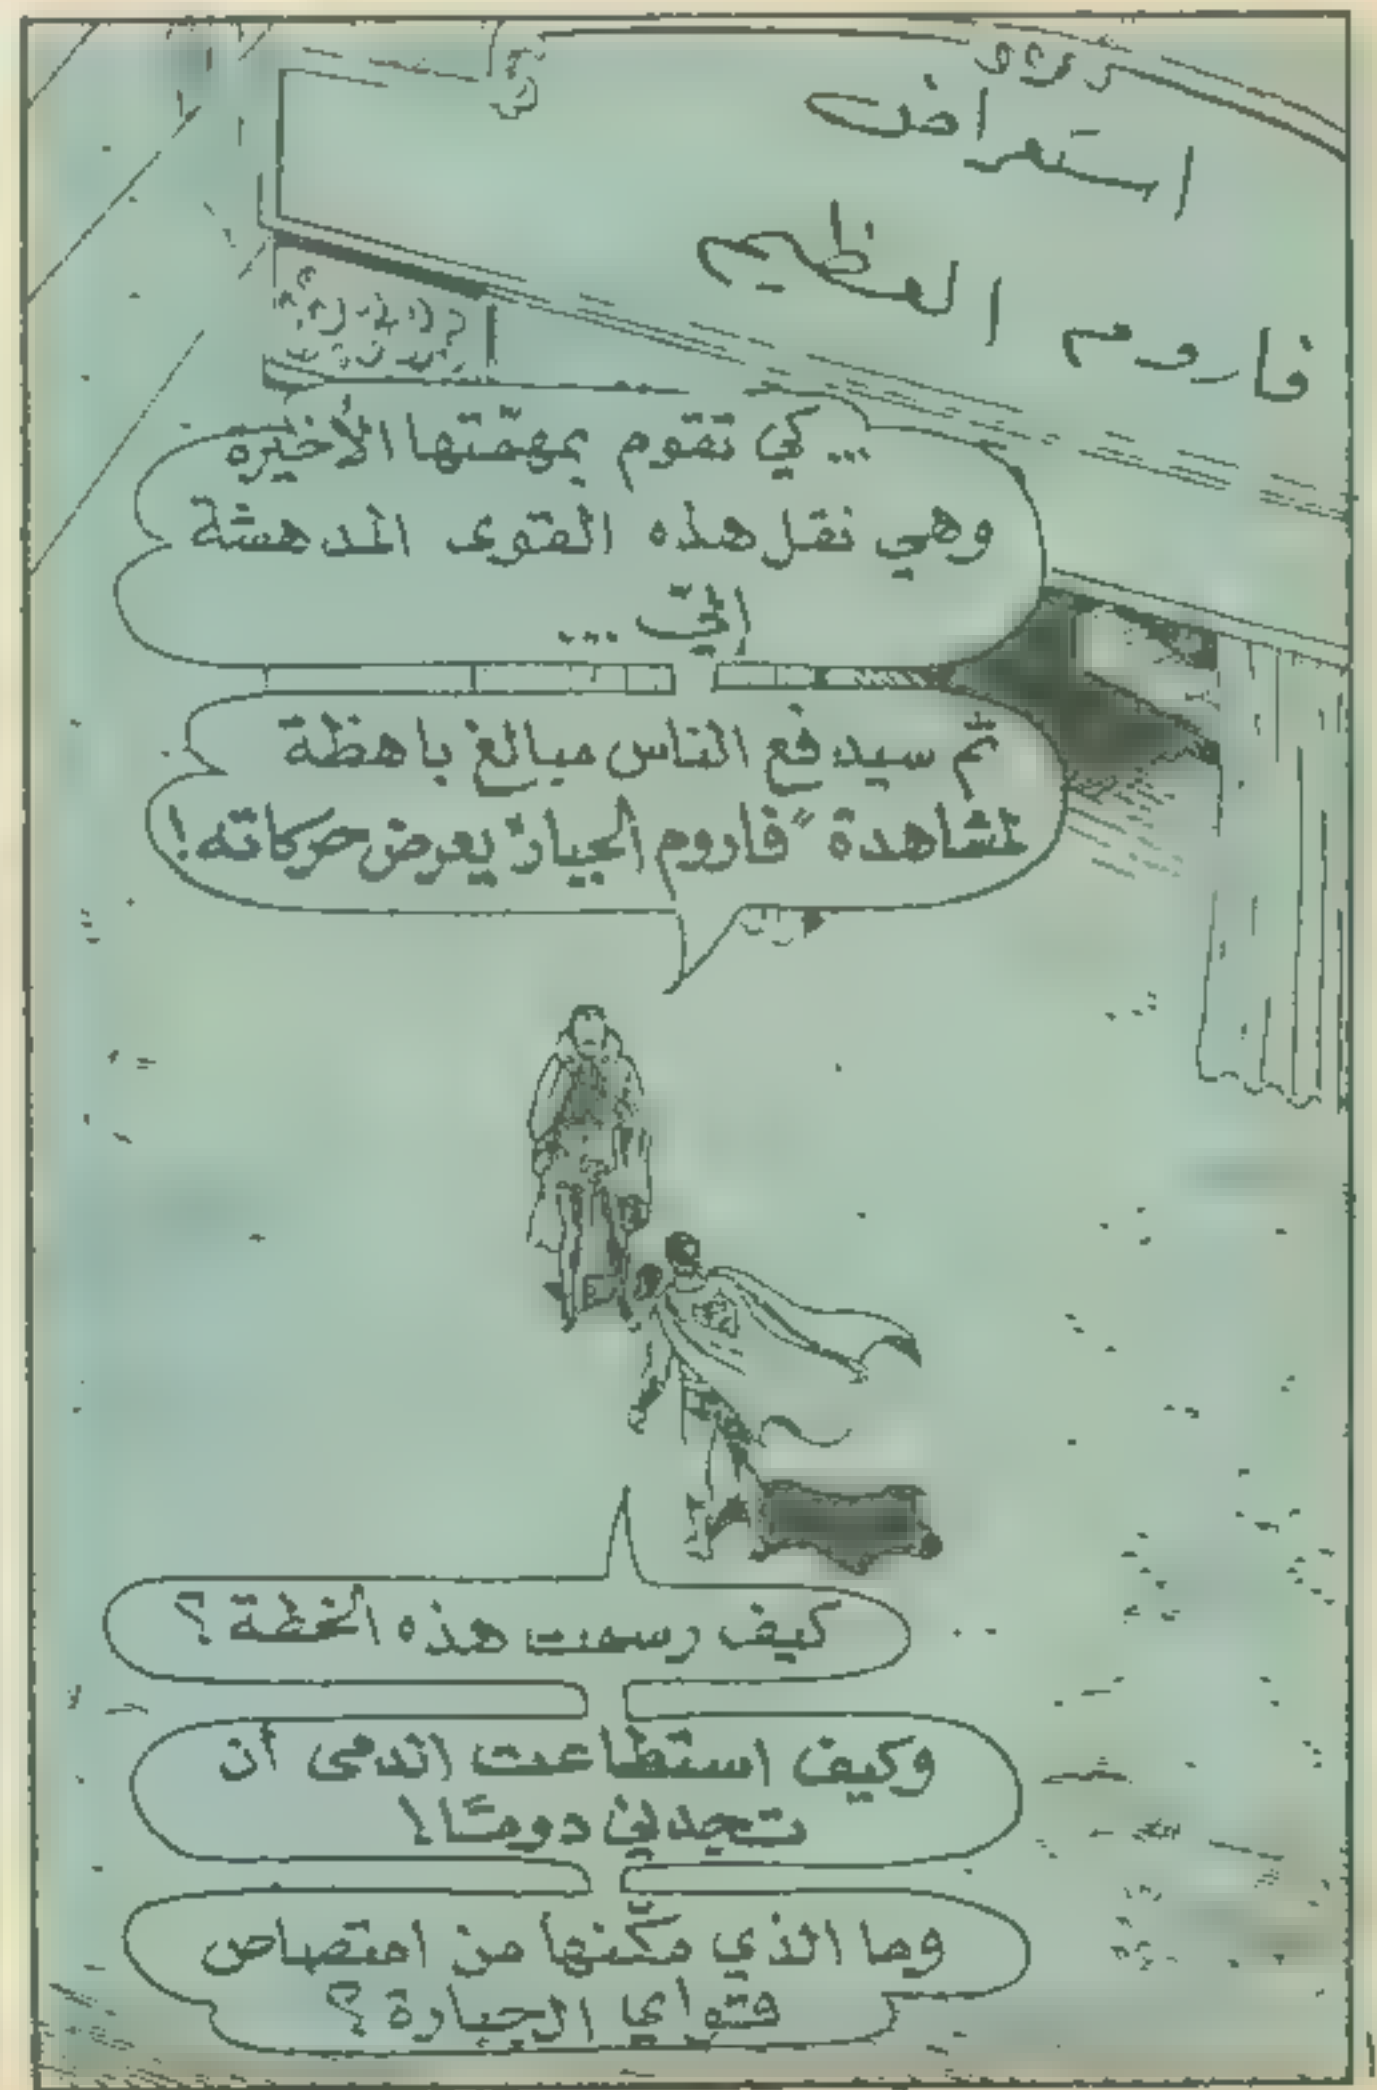 استعراض
فاروم العظيم
... كي تقوم بمهمّتها الأخيره
وهي نقل هذه القوى المدهشة
إليّ ...
ثم سيدفع الناس مبالغ باهظة
لمشاهدة "فاروم الجبار" يعرض حركاته!
كيف رسمت هذه الخطة؟
وكيف استطاعت الدمى أن
تجدني دومًا!
وما الذي مكّنها من امتصاص
قواي الجبارة؟